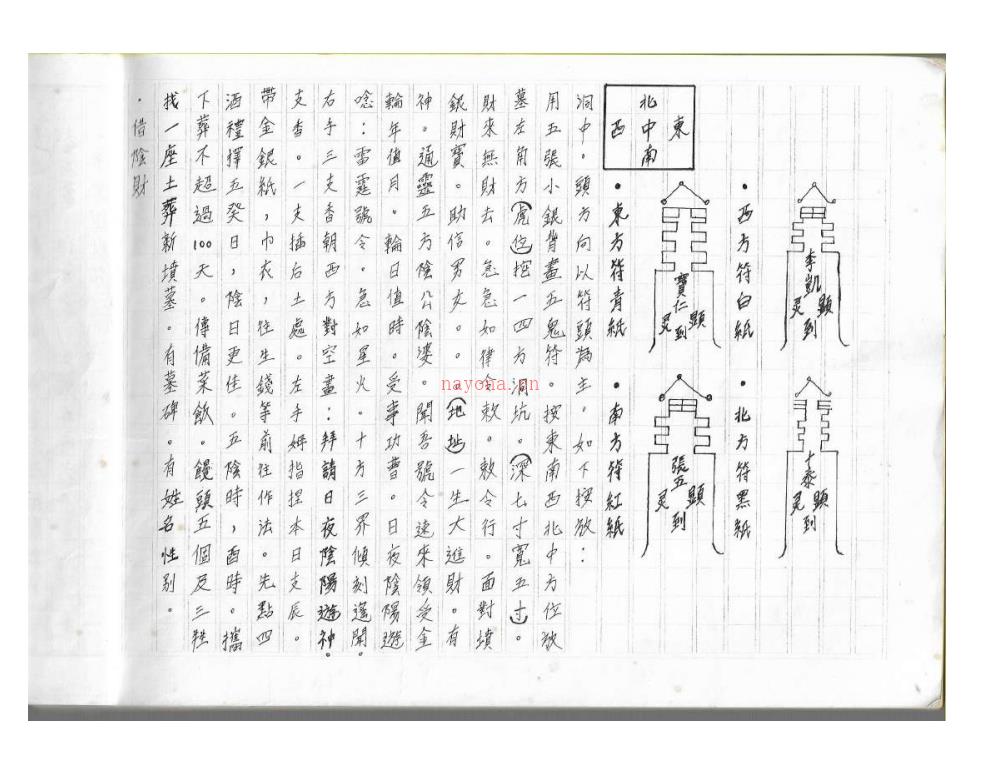 ·借陰財
找一座土葬新墳墓。有墓碑。有姓名性別。
下葬不超過100天。傳備菜飯。饅頭五個及三牲
酒禮擇五癸日,陰日更佳。五陰時,酉時。攜
帶金銀紙,巾衣,往生錢等前往作法。先點四
支香。一支插后土處。左手姆指捏本日支辰。
右手三支香朝西方對空畫:拜請日夜陰陽遊神。
唸:雷霆號令。急如星火。十方三界傾刻遙聞。
輪年值月。輪日值時。受事功曹。日夜陰陽遊
神。通靈五方陰公陰婆。聞吾號令速來領受金
銀財寶。助信男女。(地址)一生大進財。有
財來無財去。急急如律令敕。敕令行。面對墳
墓左角方(虎位)挖一四方洞坑。(深七寸寬五寸)。
用五張小銀背畫五鬼符。按東南西北中方位放
洞中。頭方向以符頭為主。如下按放:
西
北中南
東
·東方符青紙
寶仁
灵到顯
·南方符紅紙
張五
灵到顯
·西方符白紙
李凱
灵到顯
·北方符黑紙
灵到顯
nayona.cn